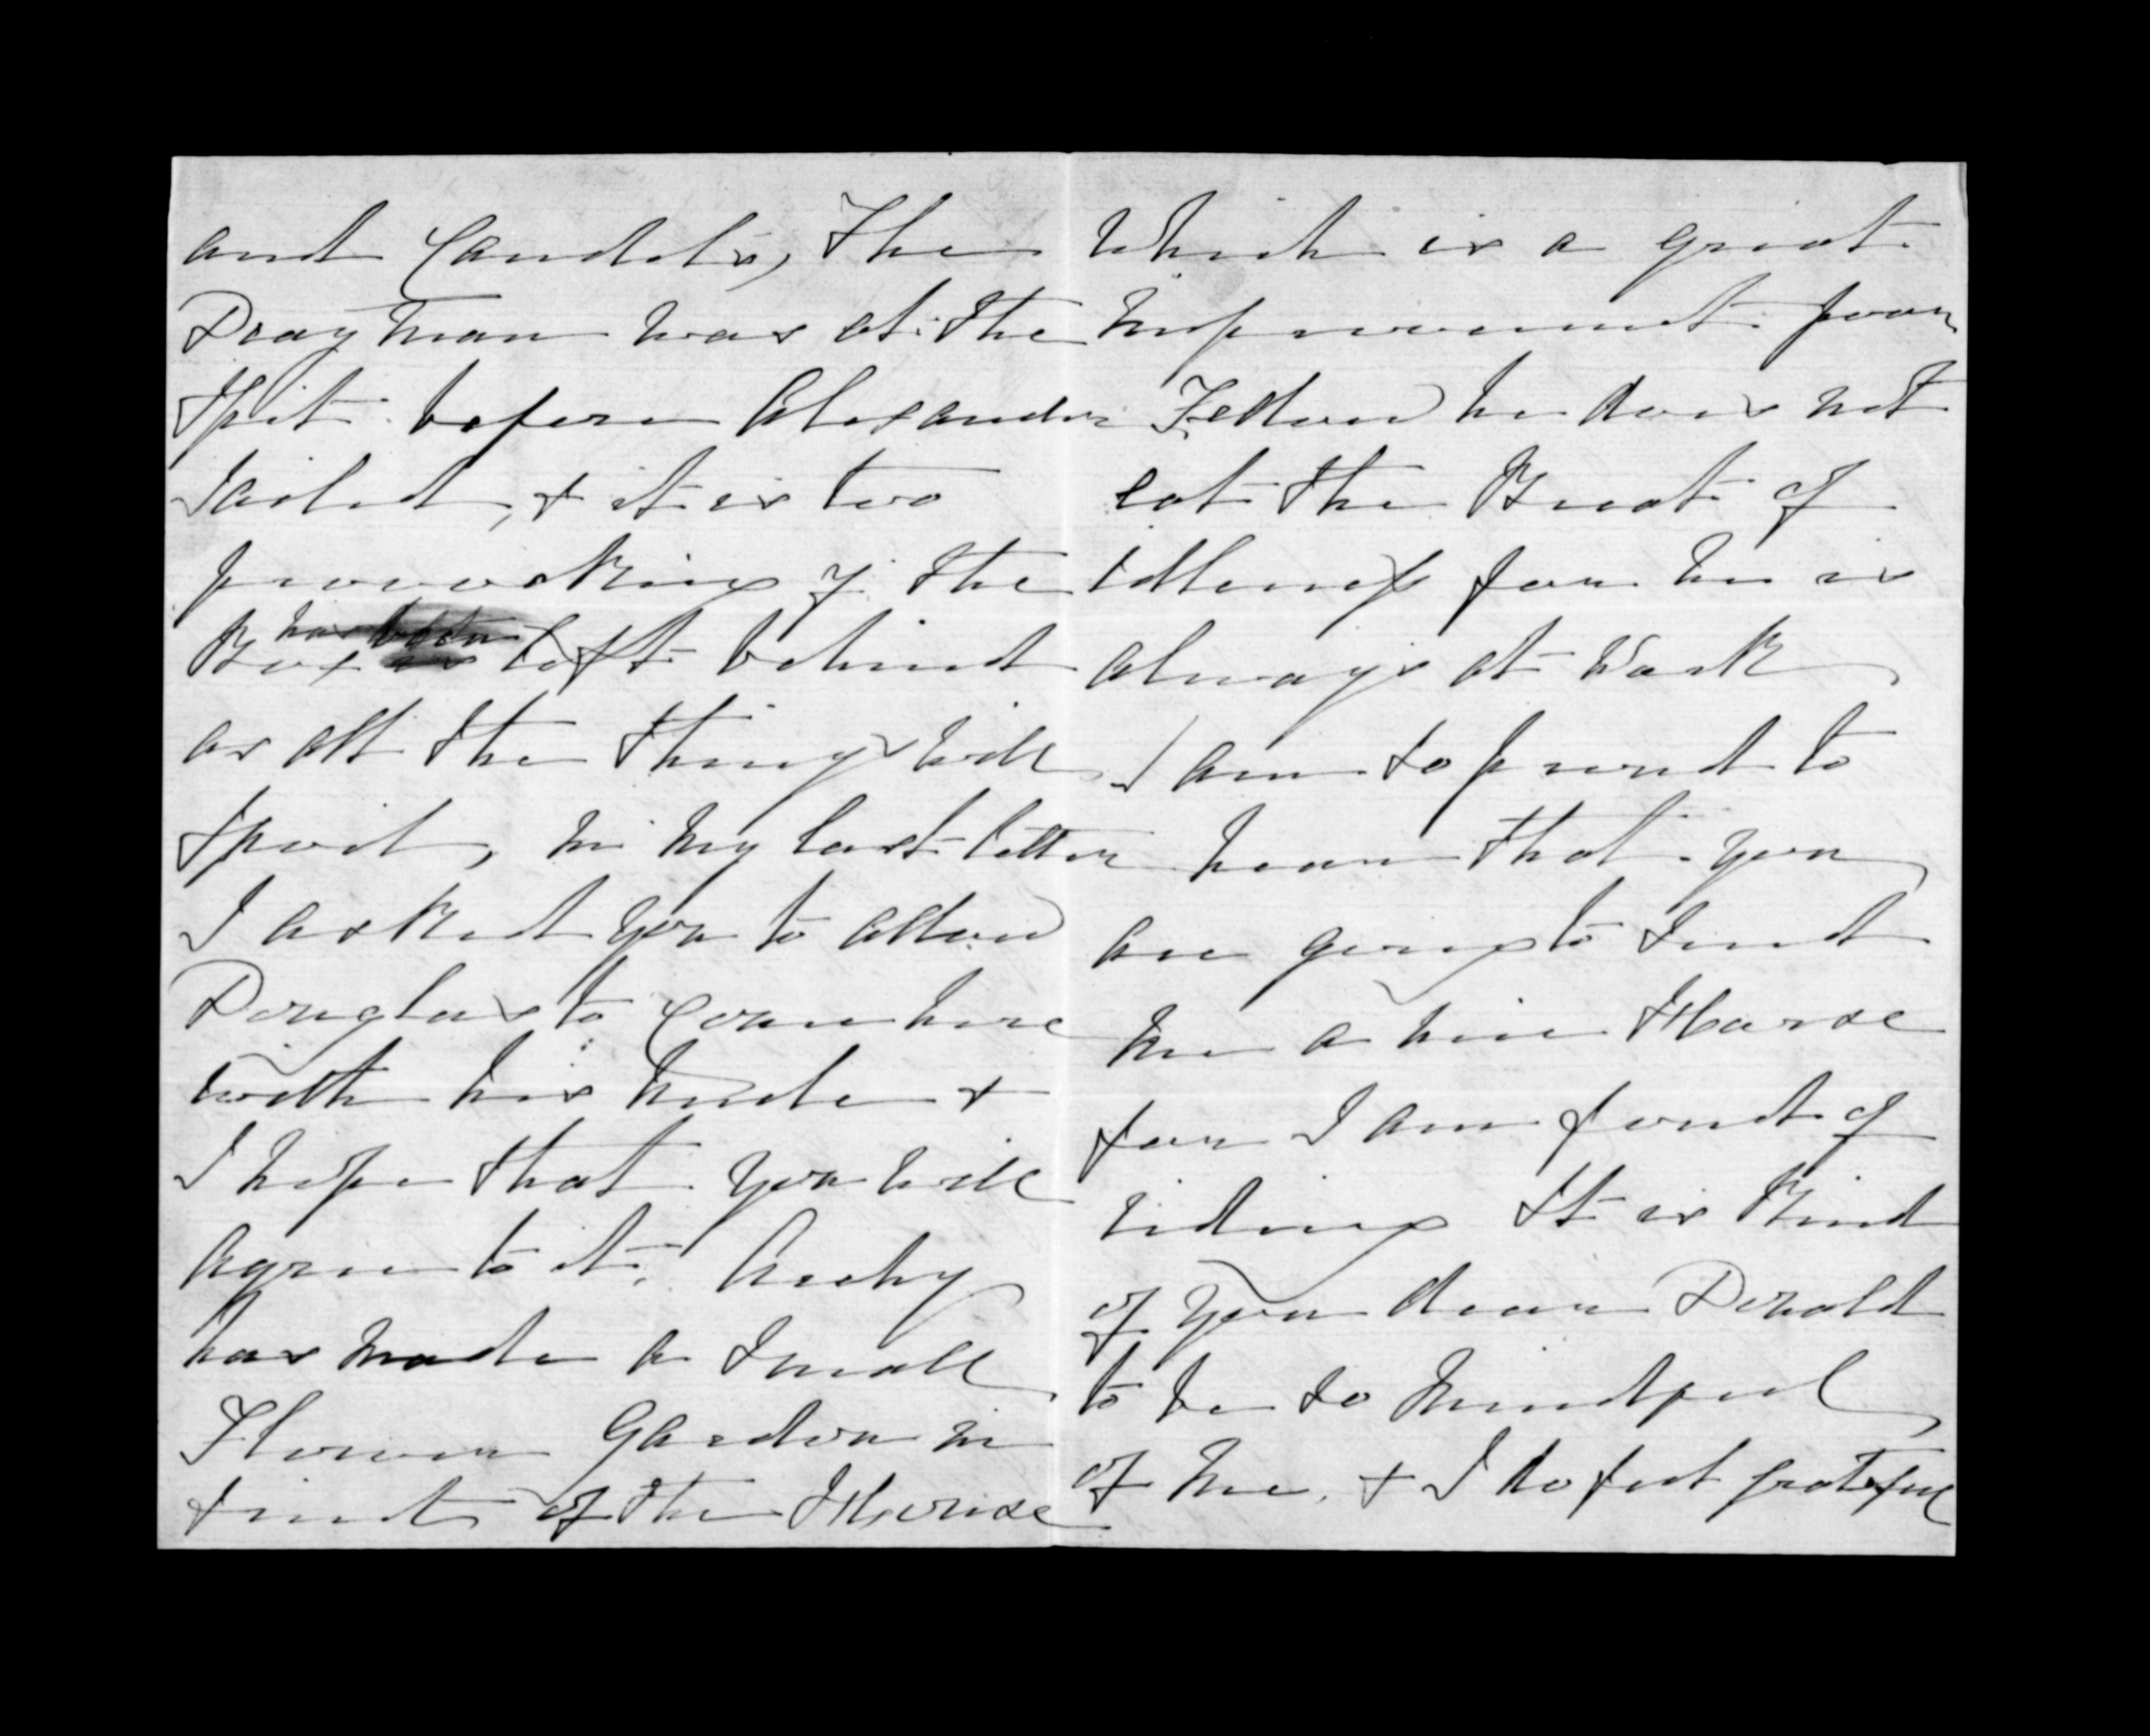 and Candels, The
Drayman was at the
Spit before Alexander
Sailed, & it is too
provoking if the
Box has been left behind
as all the things will
Spoil, in my last letter
I asked you to allow
Douglas to come here
with his Uncle &
I hope that you will
agree to it, Archy
has made a Small
Flower Garden in
frint of the House
Which is a great
improvement. poor
Fellow he does not
eat the Breat of
idleness for he is
always at Work
I am so proud to
hear that you
are going to Send
me a nice Horse
for I am fond of
riding It is Kind
of you dear Donald
to be so mindful
of me, & I do feel grateful